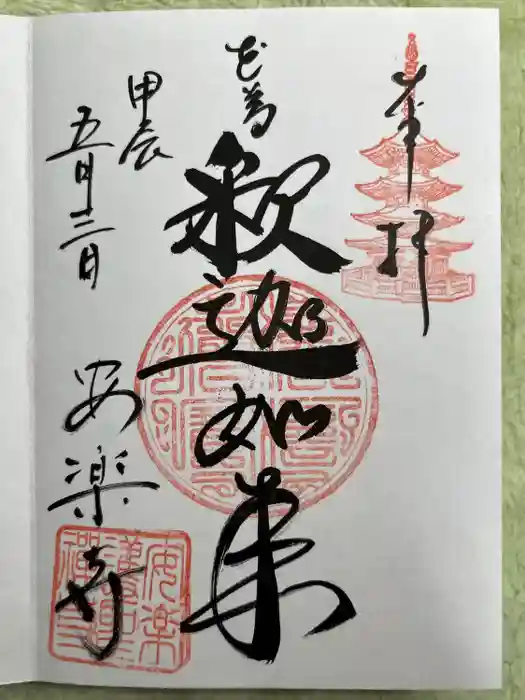 奉拝
本尊
釈迦如来
甲辰
五月三日
安楽寺
安楽
護聖
禅寺